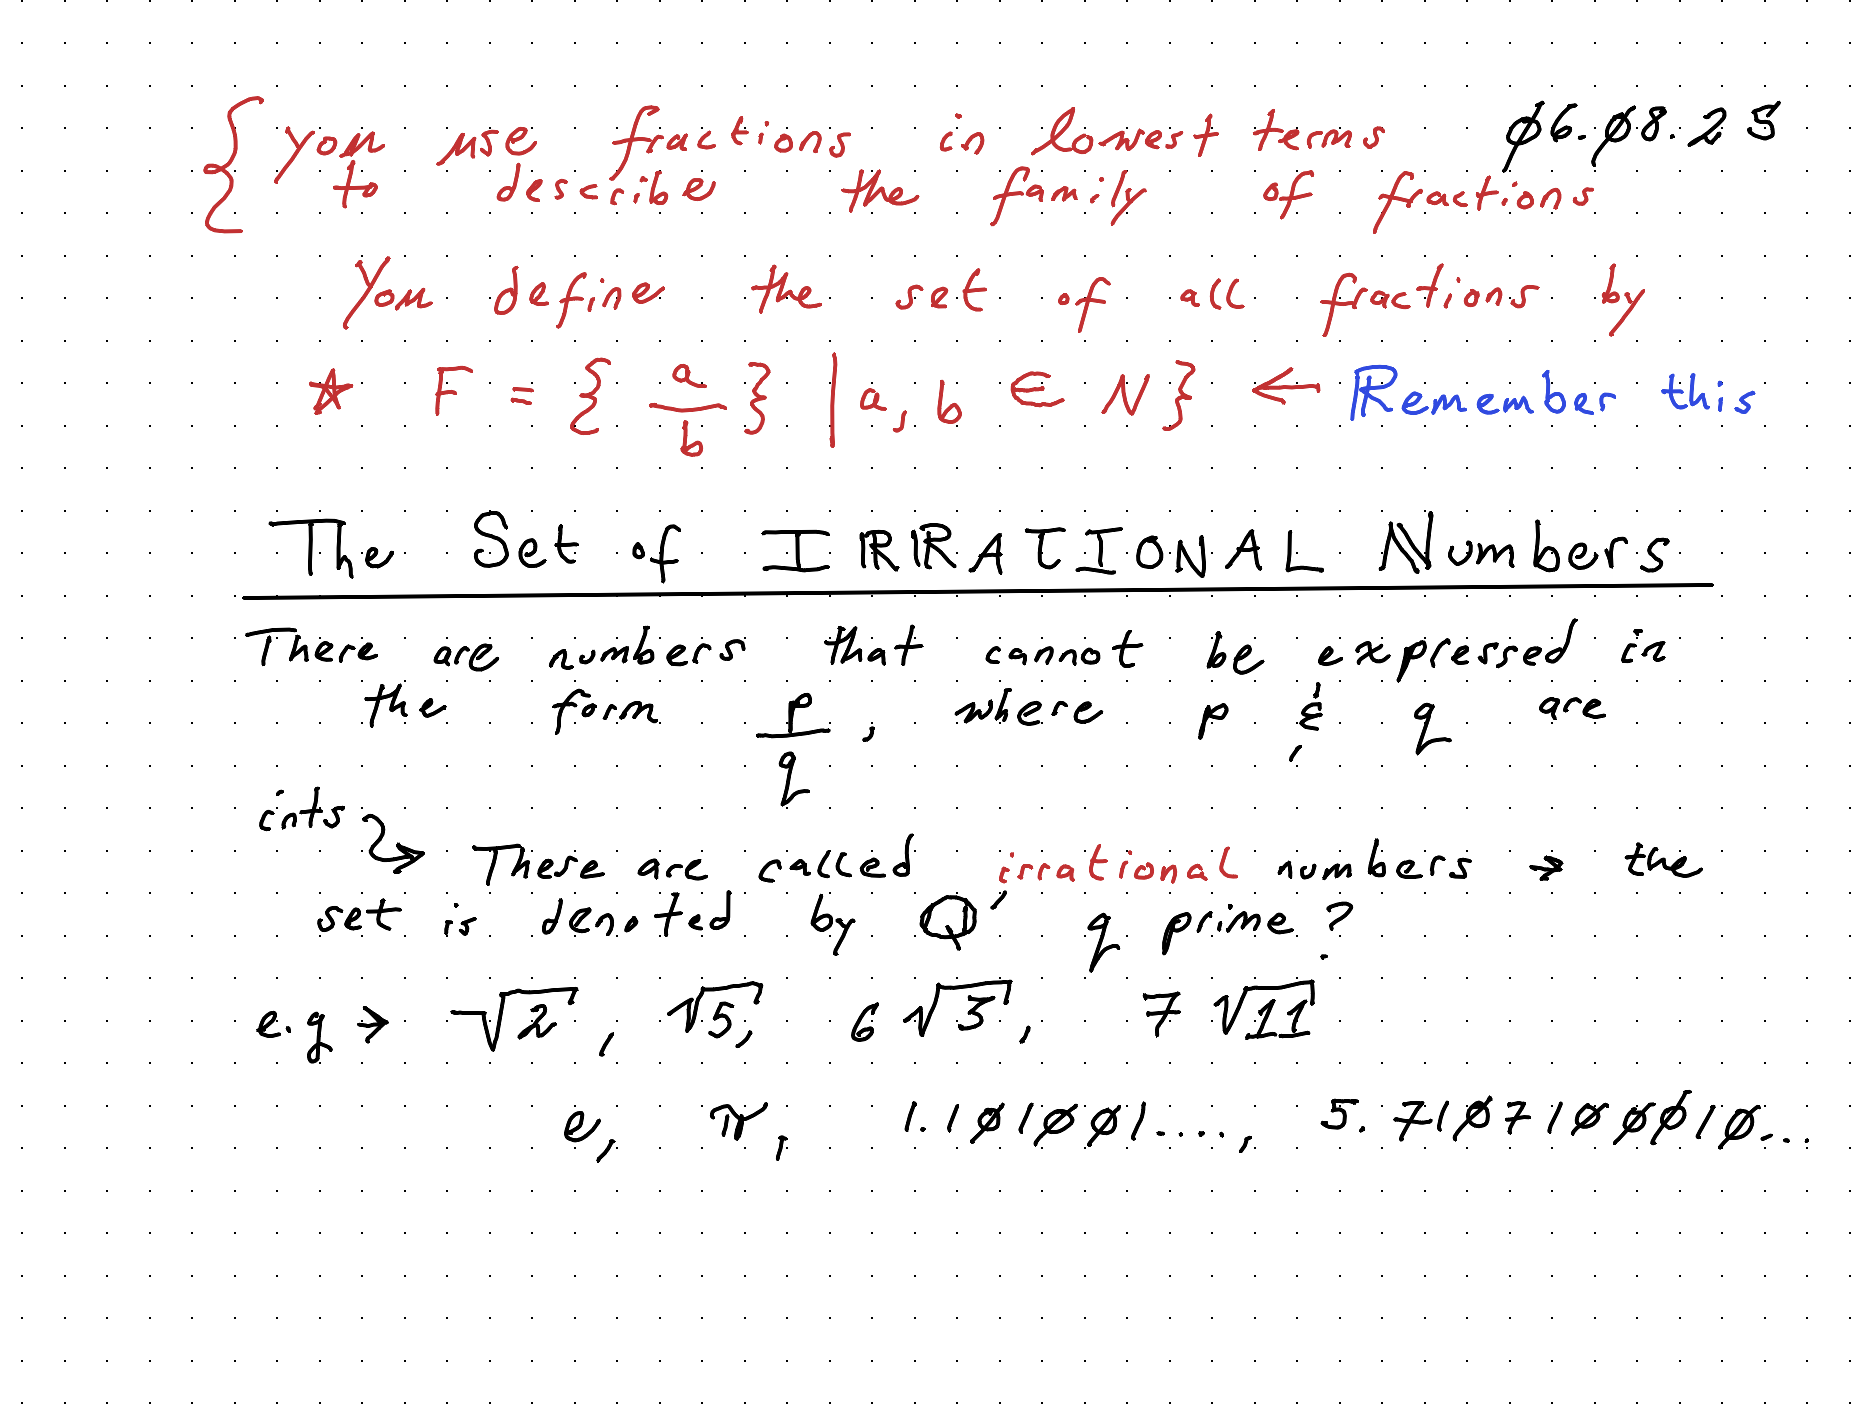 { you use fractions in lowest terms 06.08.25
to describe the family of fractions
You define the set of all fractions by
☆ F = { a/b } | a, b ∈ N } ← Remember this
The Set of IRRATIONAL Numbers
There are numbers that cannot be expressed in
the form p/q, where p & q are
ints ↝ These are called irrational numbers → the
set is denoted by Q′ q prime?
e.g → √2, √5, 6√3, 7√11
e, π, 1.101001...., 5.71071000010...